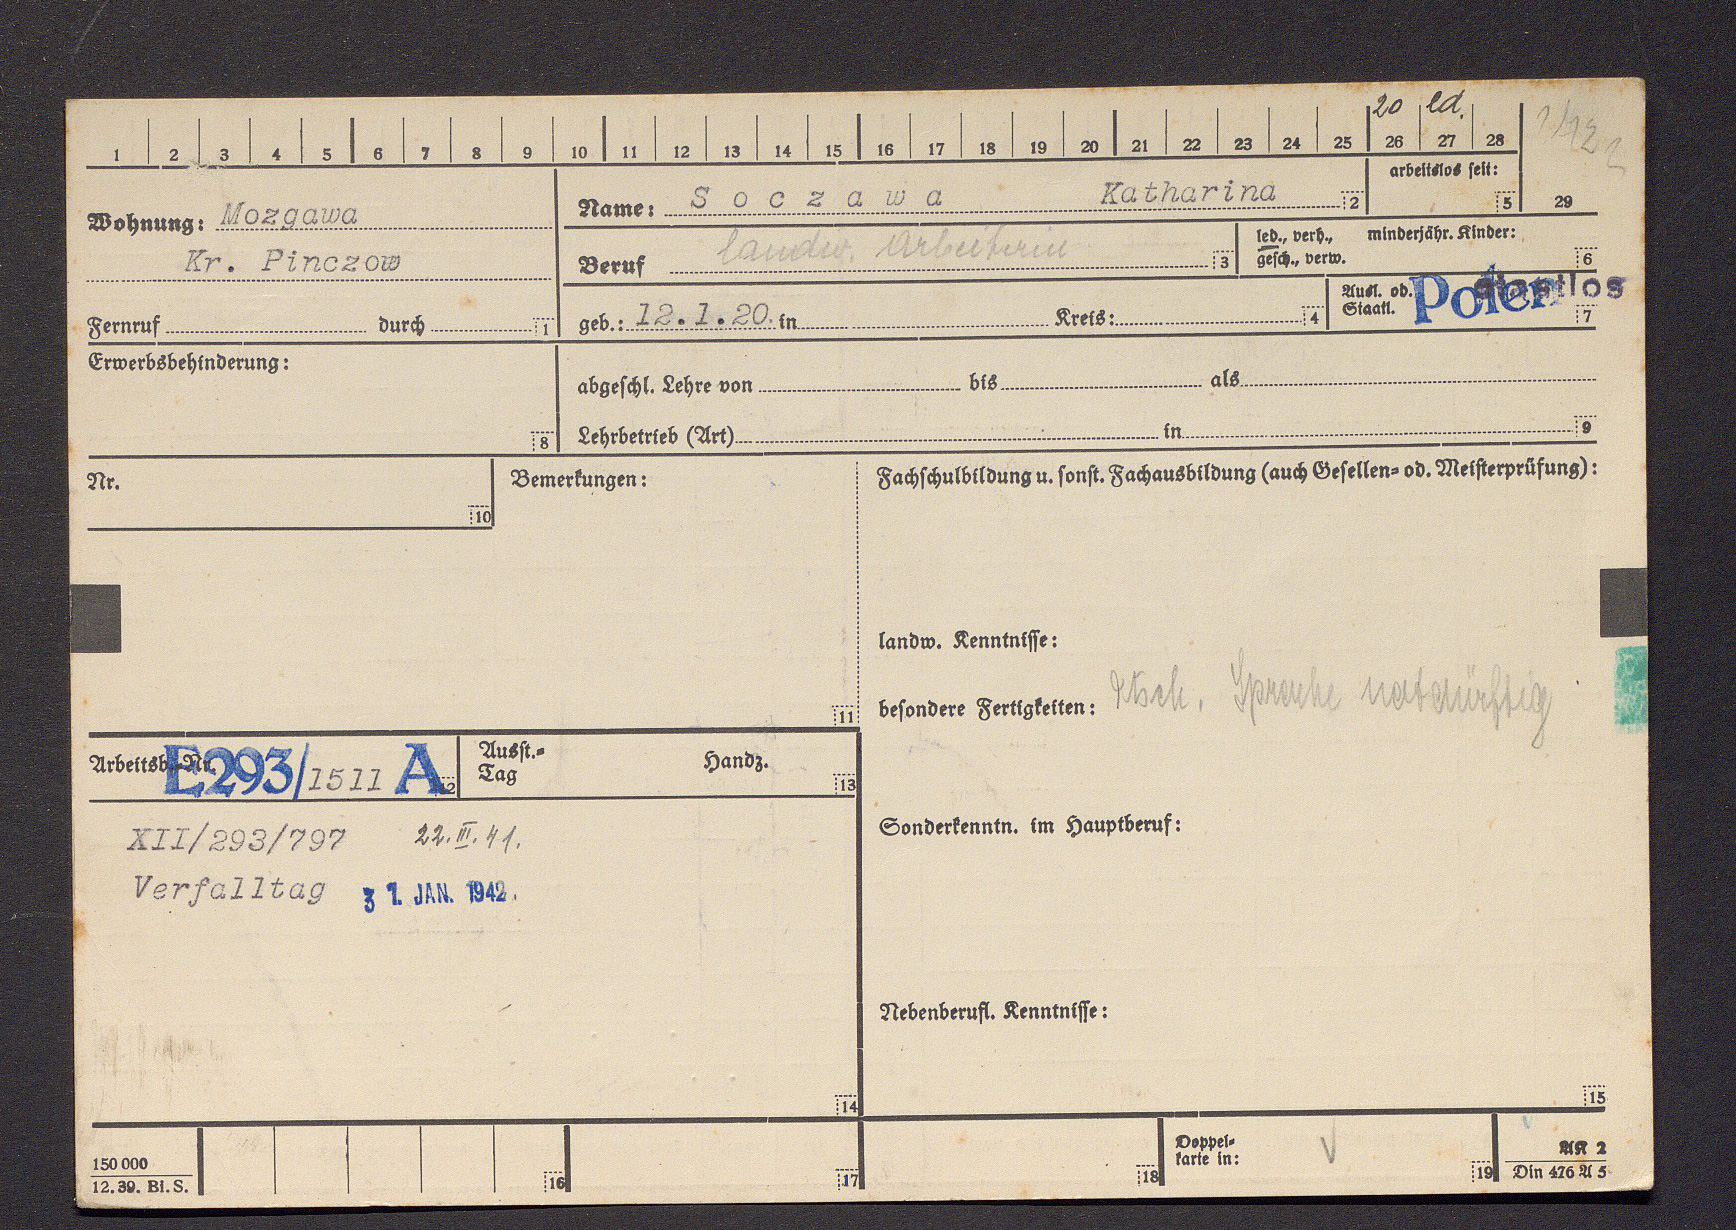 20 led.
1 2 3 4 5 6 7 8 9 10 11 12 13 14 15 16 17 18 19 20 21 22 23 24 25 26 27 28
arbeitslos seit:
5 29
Wohnung: Mozgawa
Kr. Pinczow
Fernruf durch 1
Name: Soczawa Katharina 2
Beruf landw. Arbeiterin 3
led., verh., minderjähr. Kinder:
gesch., verw. 6
geb.: 12.1.20. in Kreis: 4
Ausl. od. Polen staatlos
Staatl. 7
Erwerbsbehinderung:
8
abgeschl. Lehre von bis als
Lehrbetrieb (Art) in 9
Nr.
10
Bemerkungen:
11
Fachschulbildung u. sonst. Fachausbildung (auch Gesellen= od. Meisterprüfung):
landw. Kenntnisse:
besondere Fertigkeiten: dtsch. Sprache notdürftig
Arbeitsb.-Nr. E293/1511 A 12
Ausst.=
Tag Handz.
13
XII/293/797 22.III.41.
Verfalltag 31. JAN. 1942.
14
Sonderkenntn. im Hauptberuf:
Nebenberufl. Kenntnisse:
15
150 000
12. 39. Bi. S.
16 17 18
Doppel=
karte in: √ 19
AK 2
Din 476 A 5